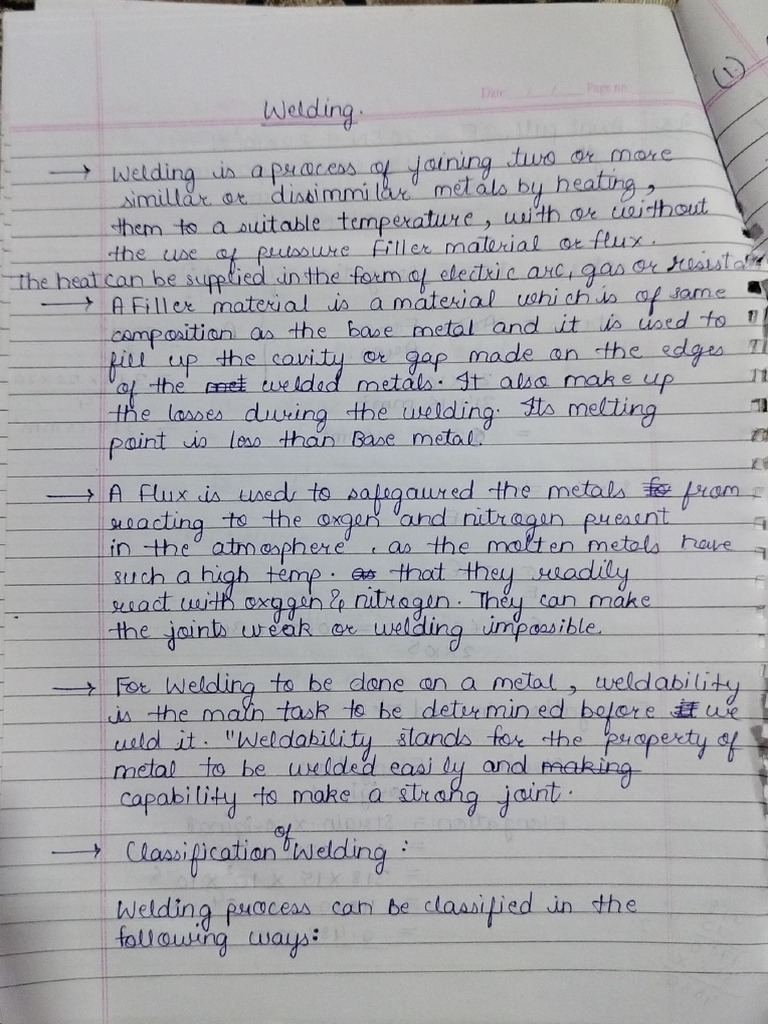 (1.)
Date / / Page no.
Welding.
→ Welding is a process of joining two or more
simillar or dissimmilar metals by heating,
them to a suitable temperature, with or without
the use of pressure filler material or flux.
the heat can be supplied in the form of electric arc, gas or resista
→ A Filler material is a material which is of same
composition as the base metal and it is used to
fill up the cavity or gap made on the edges
of the met welded metals. It also make up
the losses during the welding. Its melting
point is less than Base metal.
→ A Flux is used to safegaured the metals fo from
reacting to the oxgen and nitrogen present
in the atmosphere, as the molten metals have
such a high temp. as that they readily
react with oxygen & nitrogen. They can make
the joints weak or welding impossible.
→ For Welding to be done on a metal, weldability
is the main task to be determined before it we
weld it. "Weldability stands for the property of
metal to be welded easily and making
capability to make a strong joint.
→ Classification of Welding :
Welding process can be classified in the
following ways: